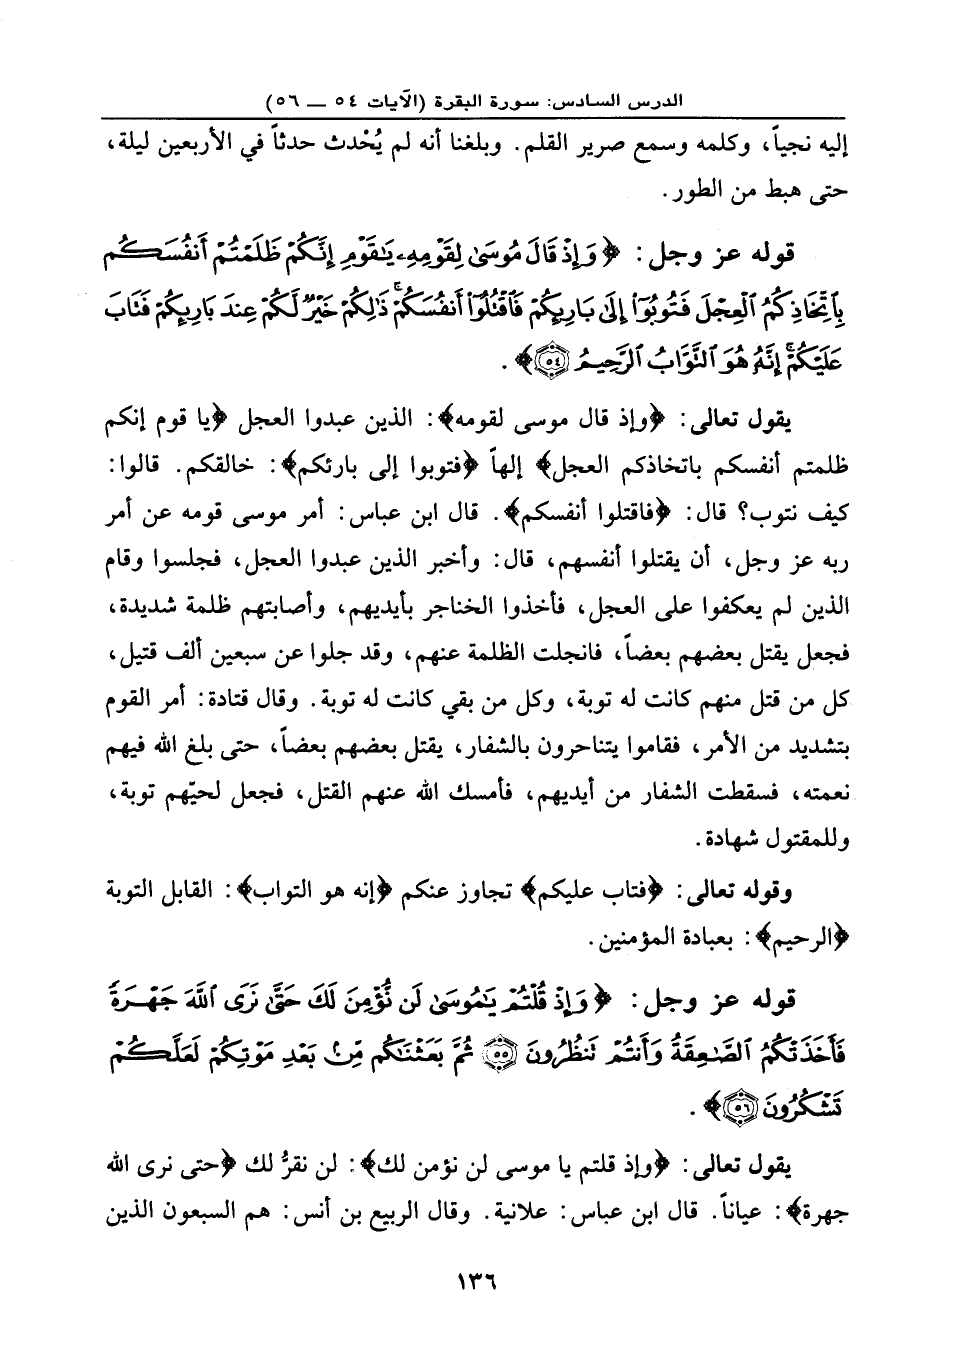 الدرس السادس: سورة البقرة (الآيات ٥٤ ــ ٥٦)
إليه نجياً، وكلمه وسمع صرير القلم. وبلغنا أنه لم يُحْدث حدثاً في الأربعين ليلة،
حتى هبط من الطور.
قوله عز وجل: ﴿وَإِذْ قَالَ مُوسَىٰ لِقَوْمِهِۦ يَٰقَوْمِ إِنَّكُمْ ظَلَمْتُمْ أَنفُسَكُم
بِٱتِّخَاذِكُمُ ٱلْعِجْلَ فَتُوبُوٓا۟ إِلَىٰ بَارِئِكُمْ فَٱقْتُلُوٓا۟ أَنفُسَكُمْ ذَٰلِكُمْ خَيْرٌ لَّكُمْ عِندَ بَارِئِكُمْ فَتَابَ
عَلَيْكُمْ ۚ إِنَّهُۥ هُوَ ٱلتَّوَّابُ ٱلرَّحِيمُ ٥٤﴾.
يقول تعالى: ﴿وإذ قال موسى لقومه﴾: الذين عبدوا العجل ﴿يا قوم إنكم
ظلمتم أنفسكم باتخاذكم العجل﴾ إلهاً ﴿فتوبوا إلى بارئكم﴾: خالقكم. قالوا:
كيف نتوب؟ قال: ﴿فاقتلوا أنفسكم﴾. قال ابن عباس: أمر موسى قومه عن أمر
ربه عز وجل، أن يقتلوا أنفسهم، قال: وأخبر الذين عبدوا العجل، فجلسوا وقام
الذين لم يعكفوا على العجل، فأخذوا الخناجر بأيديهم، وأصابتهم ظلمة شديدة،
فجعل يقتل بعضهم بعضاً، فانجلت الظلمة عنهم، وقد جلوا عن سبعين ألف قتيل،
كل من قتل منهم كانت له توبة، وكل من بقي كانت له توبة. وقال قتادة: أمر القوم
بتشديد من الأمر، فقاموا يتناحرون بالشفار، يقتل بعضهم بعضاً، حتى بلغ الله فيهم
نعمته، فسقطت الشفار من أيديهم، فأمسك الله عنهم القتل، فجعل لحيّهم توبة،
وللمقتول شهادة.
وقوله تعالى: ﴿فتاب عليكم﴾ تجاوز عنكم ﴿إنه هو التواب﴾: القابل التوبة
﴿الرحيم﴾: بعبادة المؤمنين.
قوله عز وجل: ﴿وَإِذْ قُلْتُمْ يَٰمُوسَىٰ لَن نُّؤْمِنَ لَكَ حَتَّىٰ نَرَى ٱللَّهَ جَهْرَةً
فَأَخَذَتْكُمُ ٱلصَّٰعِقَةُ وَأَنتُمْ تَنظُرُونَ ٥٥ ثُمَّ بَعَثْنَٰكُم مِّنۢ بَعْدِ مَوْتِكُمْ لَعَلَّكُمْ
تَشْكُرُونَ ٥٦﴾.
يقول تعالى: ﴿وإذ قلتم يا موسى لن نؤمن لك﴾: لن نقرُّ لك ﴿حتى نرى الله
جهرة﴾: عياناً. قال ابن عباس: علانية. وقال الربيع بن أنس: هم السبعون الذين
١٣٦